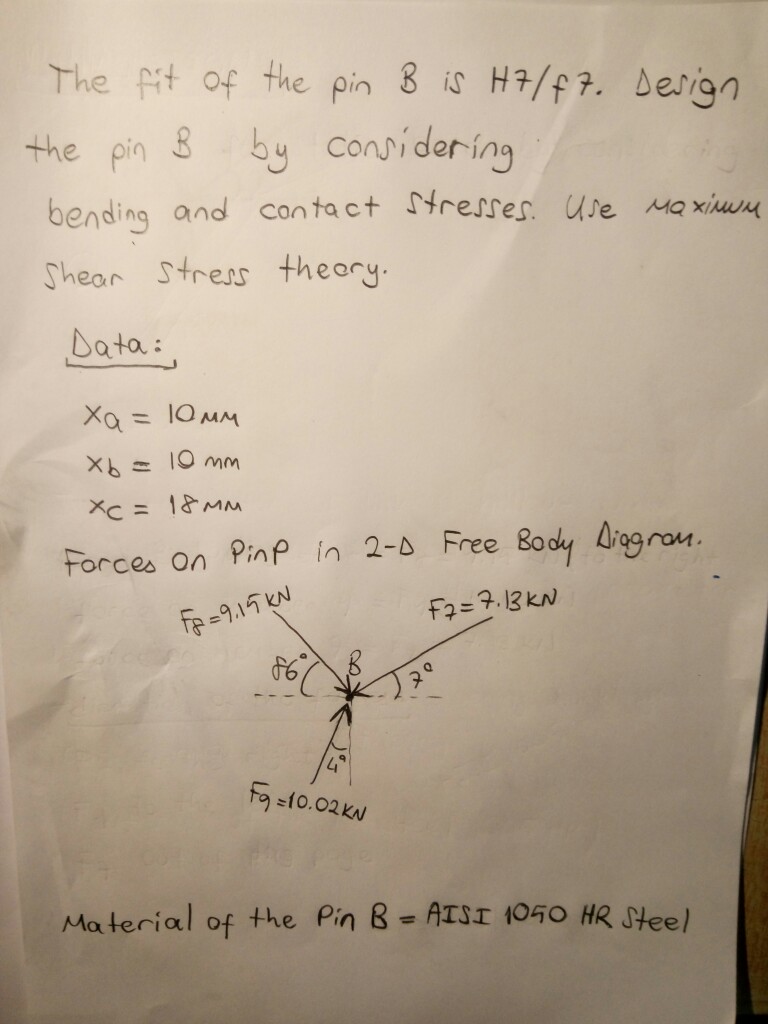 The fit of the pin B is H7/f7. Design
the pin B by considering
bending and contact stresses. Use maximum
shear stress theory.
Data:
xa = 10 mm
xb = 10 mm
xc = 18 mm
Forces on PinP in 2-D Free Body Diagram.
F8=9.15 KN
F7=7.13 KN
86°
B
7°
4°
F9=10.02KN
Material of the Pin B = AISI 1050 HR Steel